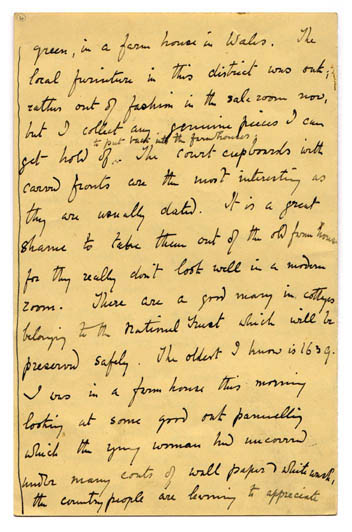 4
green, in a farm house in Wales. The
local furniture in this district was oak;
rather out of fashion in the sale room now,
but I collect any genuine pieces I can
to put back into the farm houses
get hold of. The court cupboards with
carved fronts are the most interesting as
they are usually dated. It is a great
shame to take them out of the old farm houses
for they really don't look well in a modern
room. There are a good many in cottages
belonging to the National Trust which will be
preserved safely. The oldest I know is 1639.
I was in a farm house this morning
looking at some good oak panelling
which the young woman had uncovered
under many coats of wall paper & white wash,
the country people are learning to appreciate